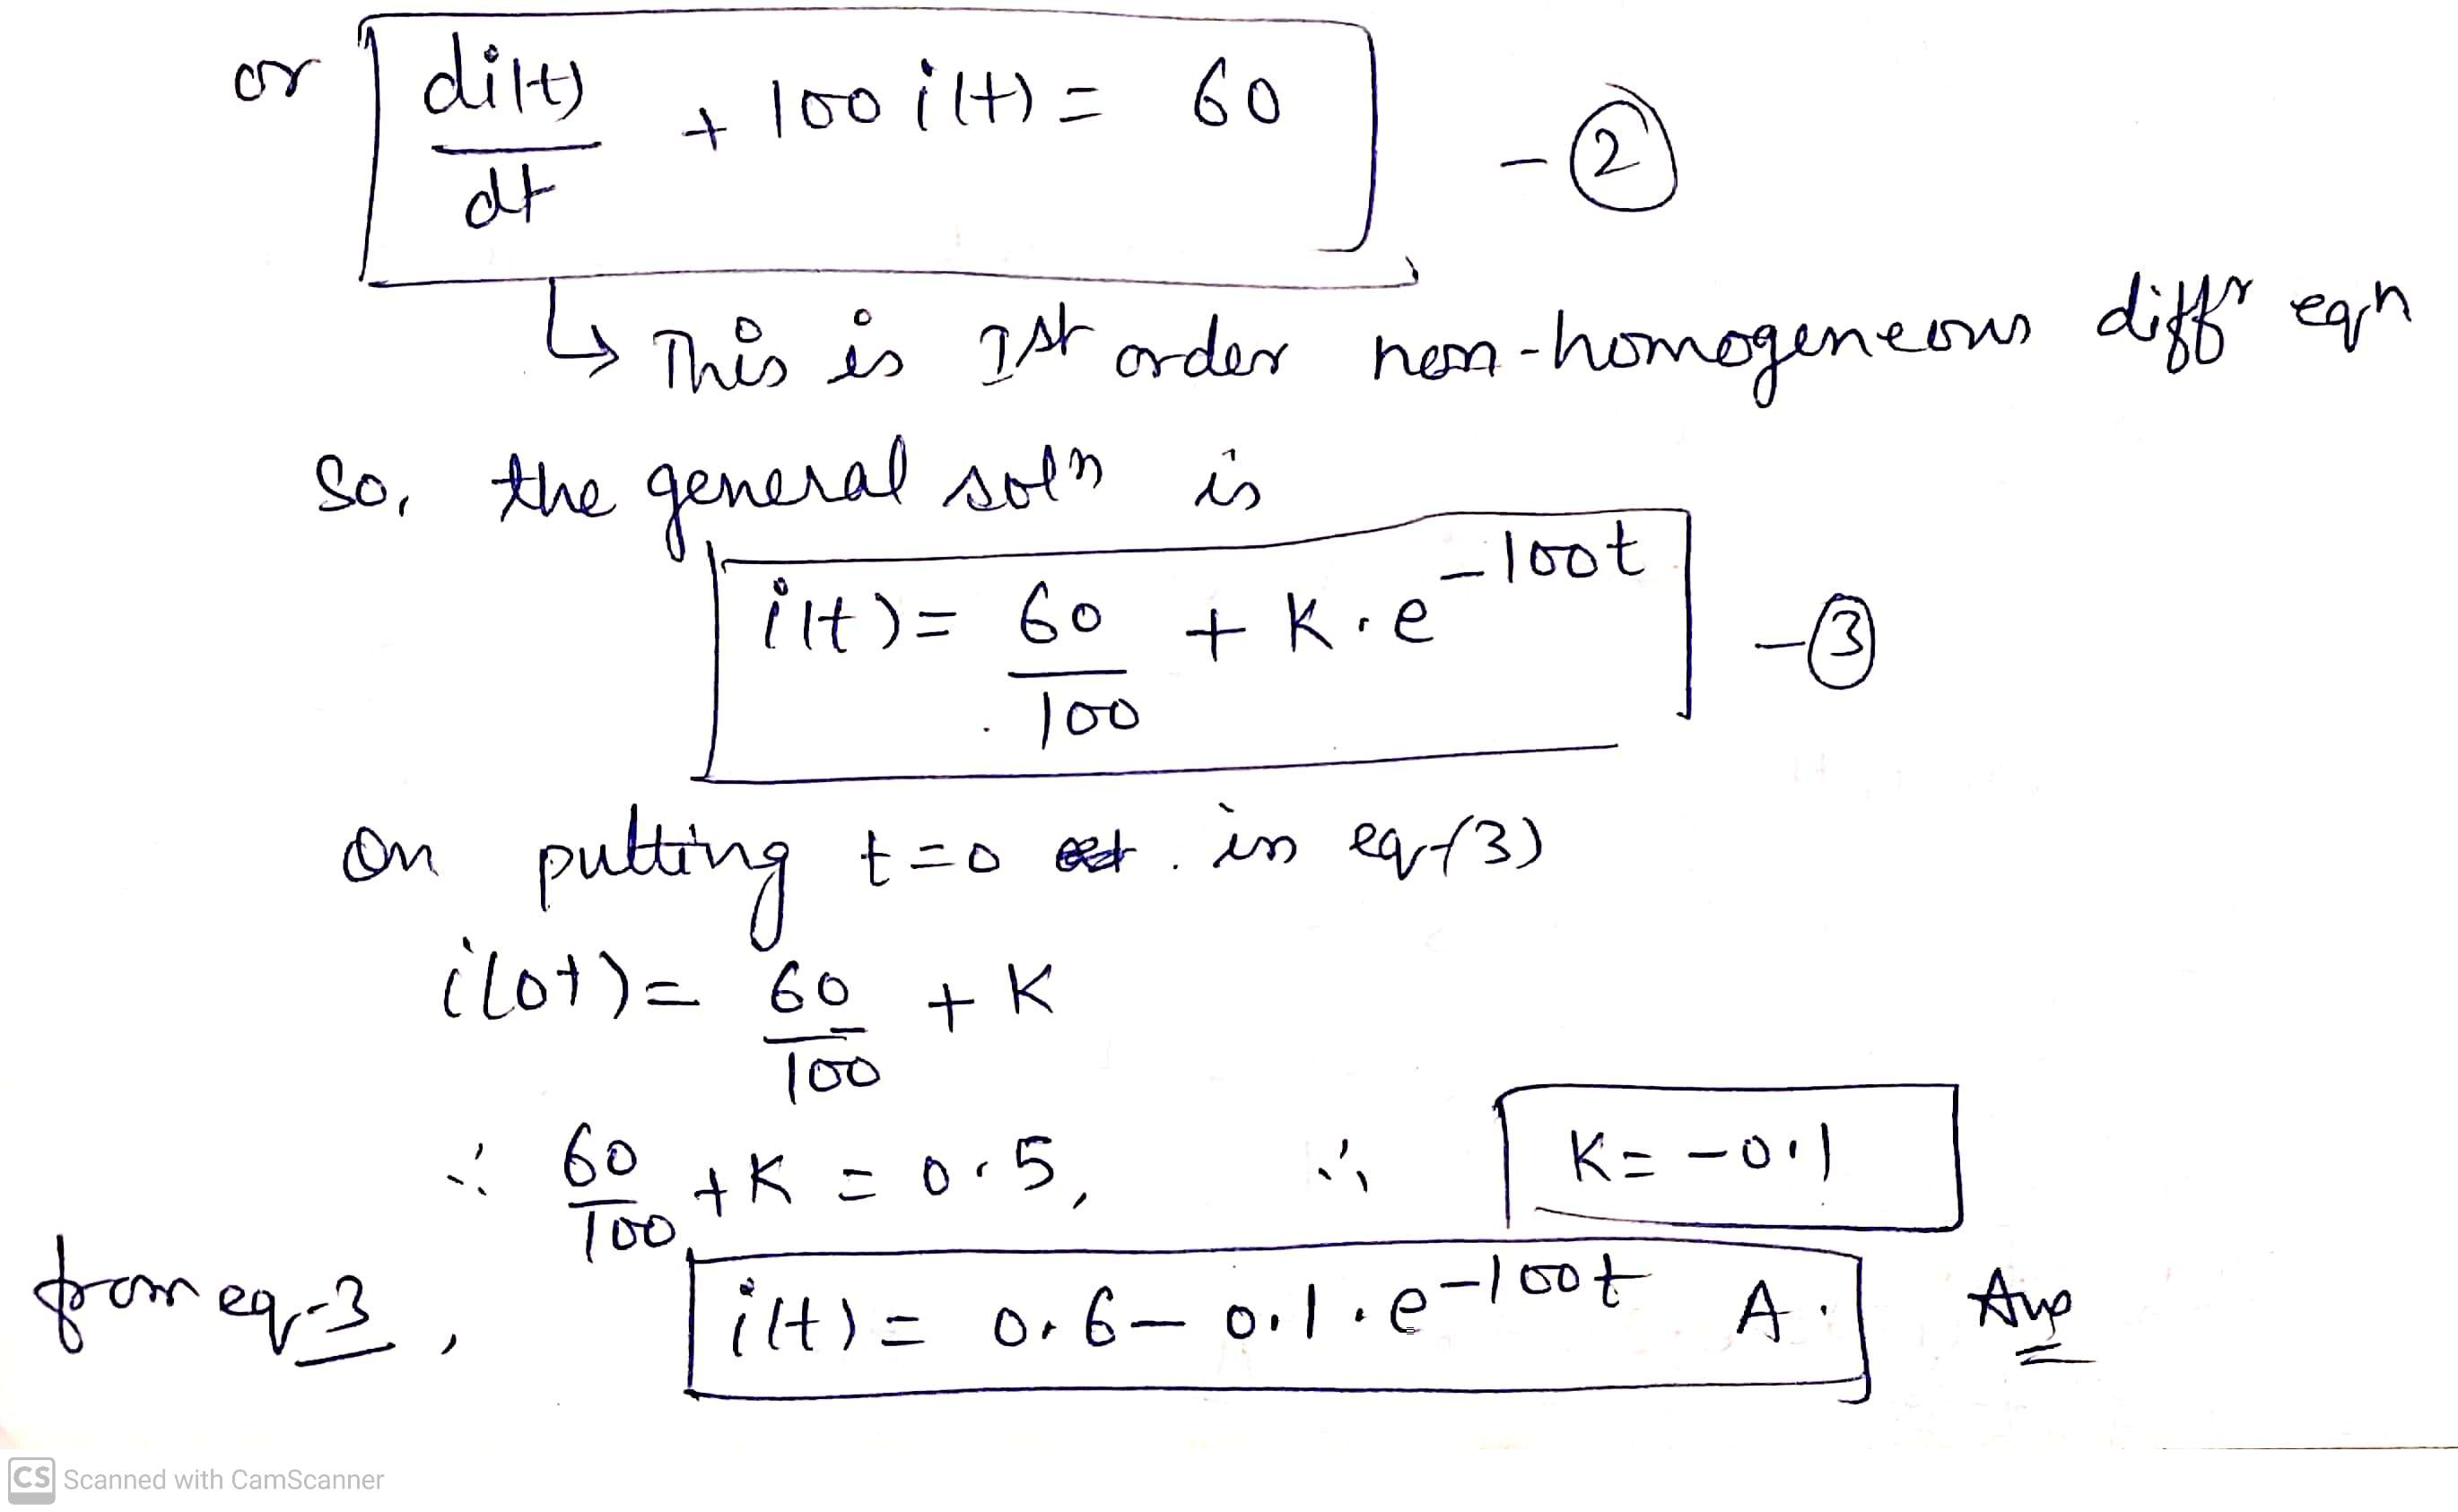 or di(t)/dt + 100 i(t) = 60 - ②
↳ This is Ist order non-homogeneous diffr eqn
So, the general soln is
i(t) = 60/100 + K.e^-100t - ③
on putting t=0 in eq-(3)
i(0+) = 60/100 + K
∴ 60/100 + K = 0.5, ∴ K = -0.1
from eq-3, i(t) = 0.6 - 0.1.e^-100t A. Ans
CS Scanned with CamScanner